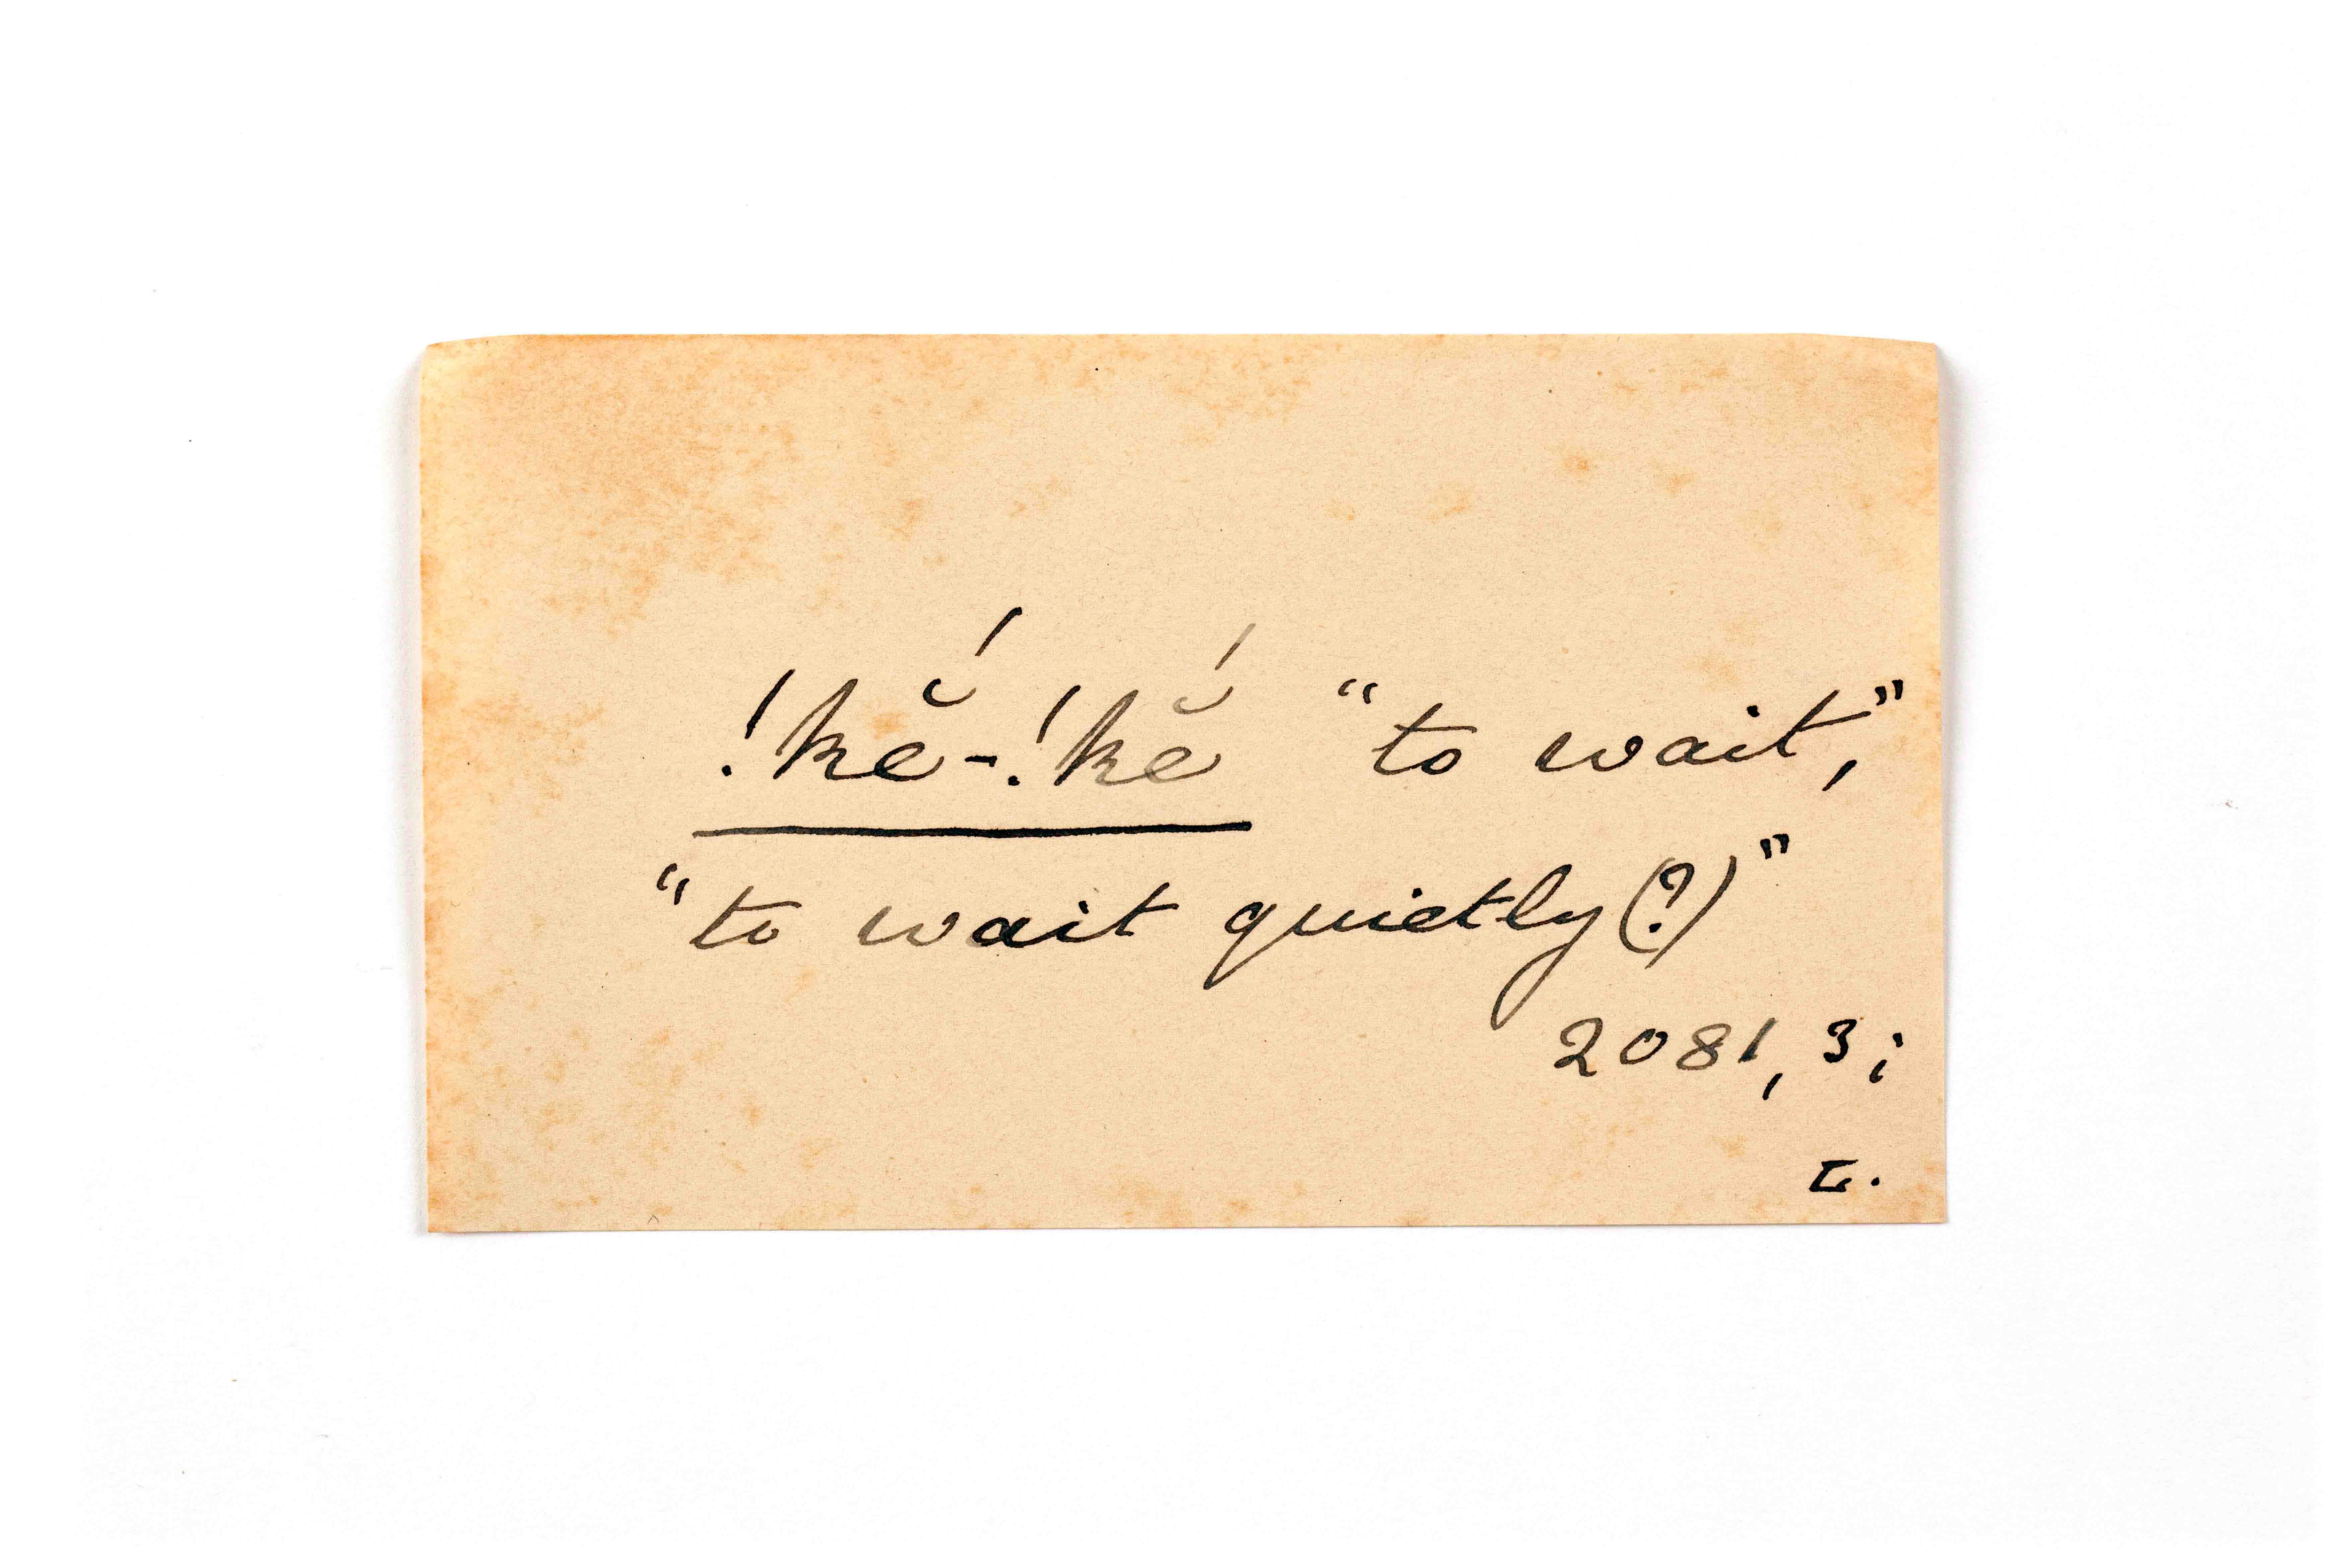 !kĕ́-!kĕ́ “to wait,”
“to wait quietly(?)”
2081, 3;
L.